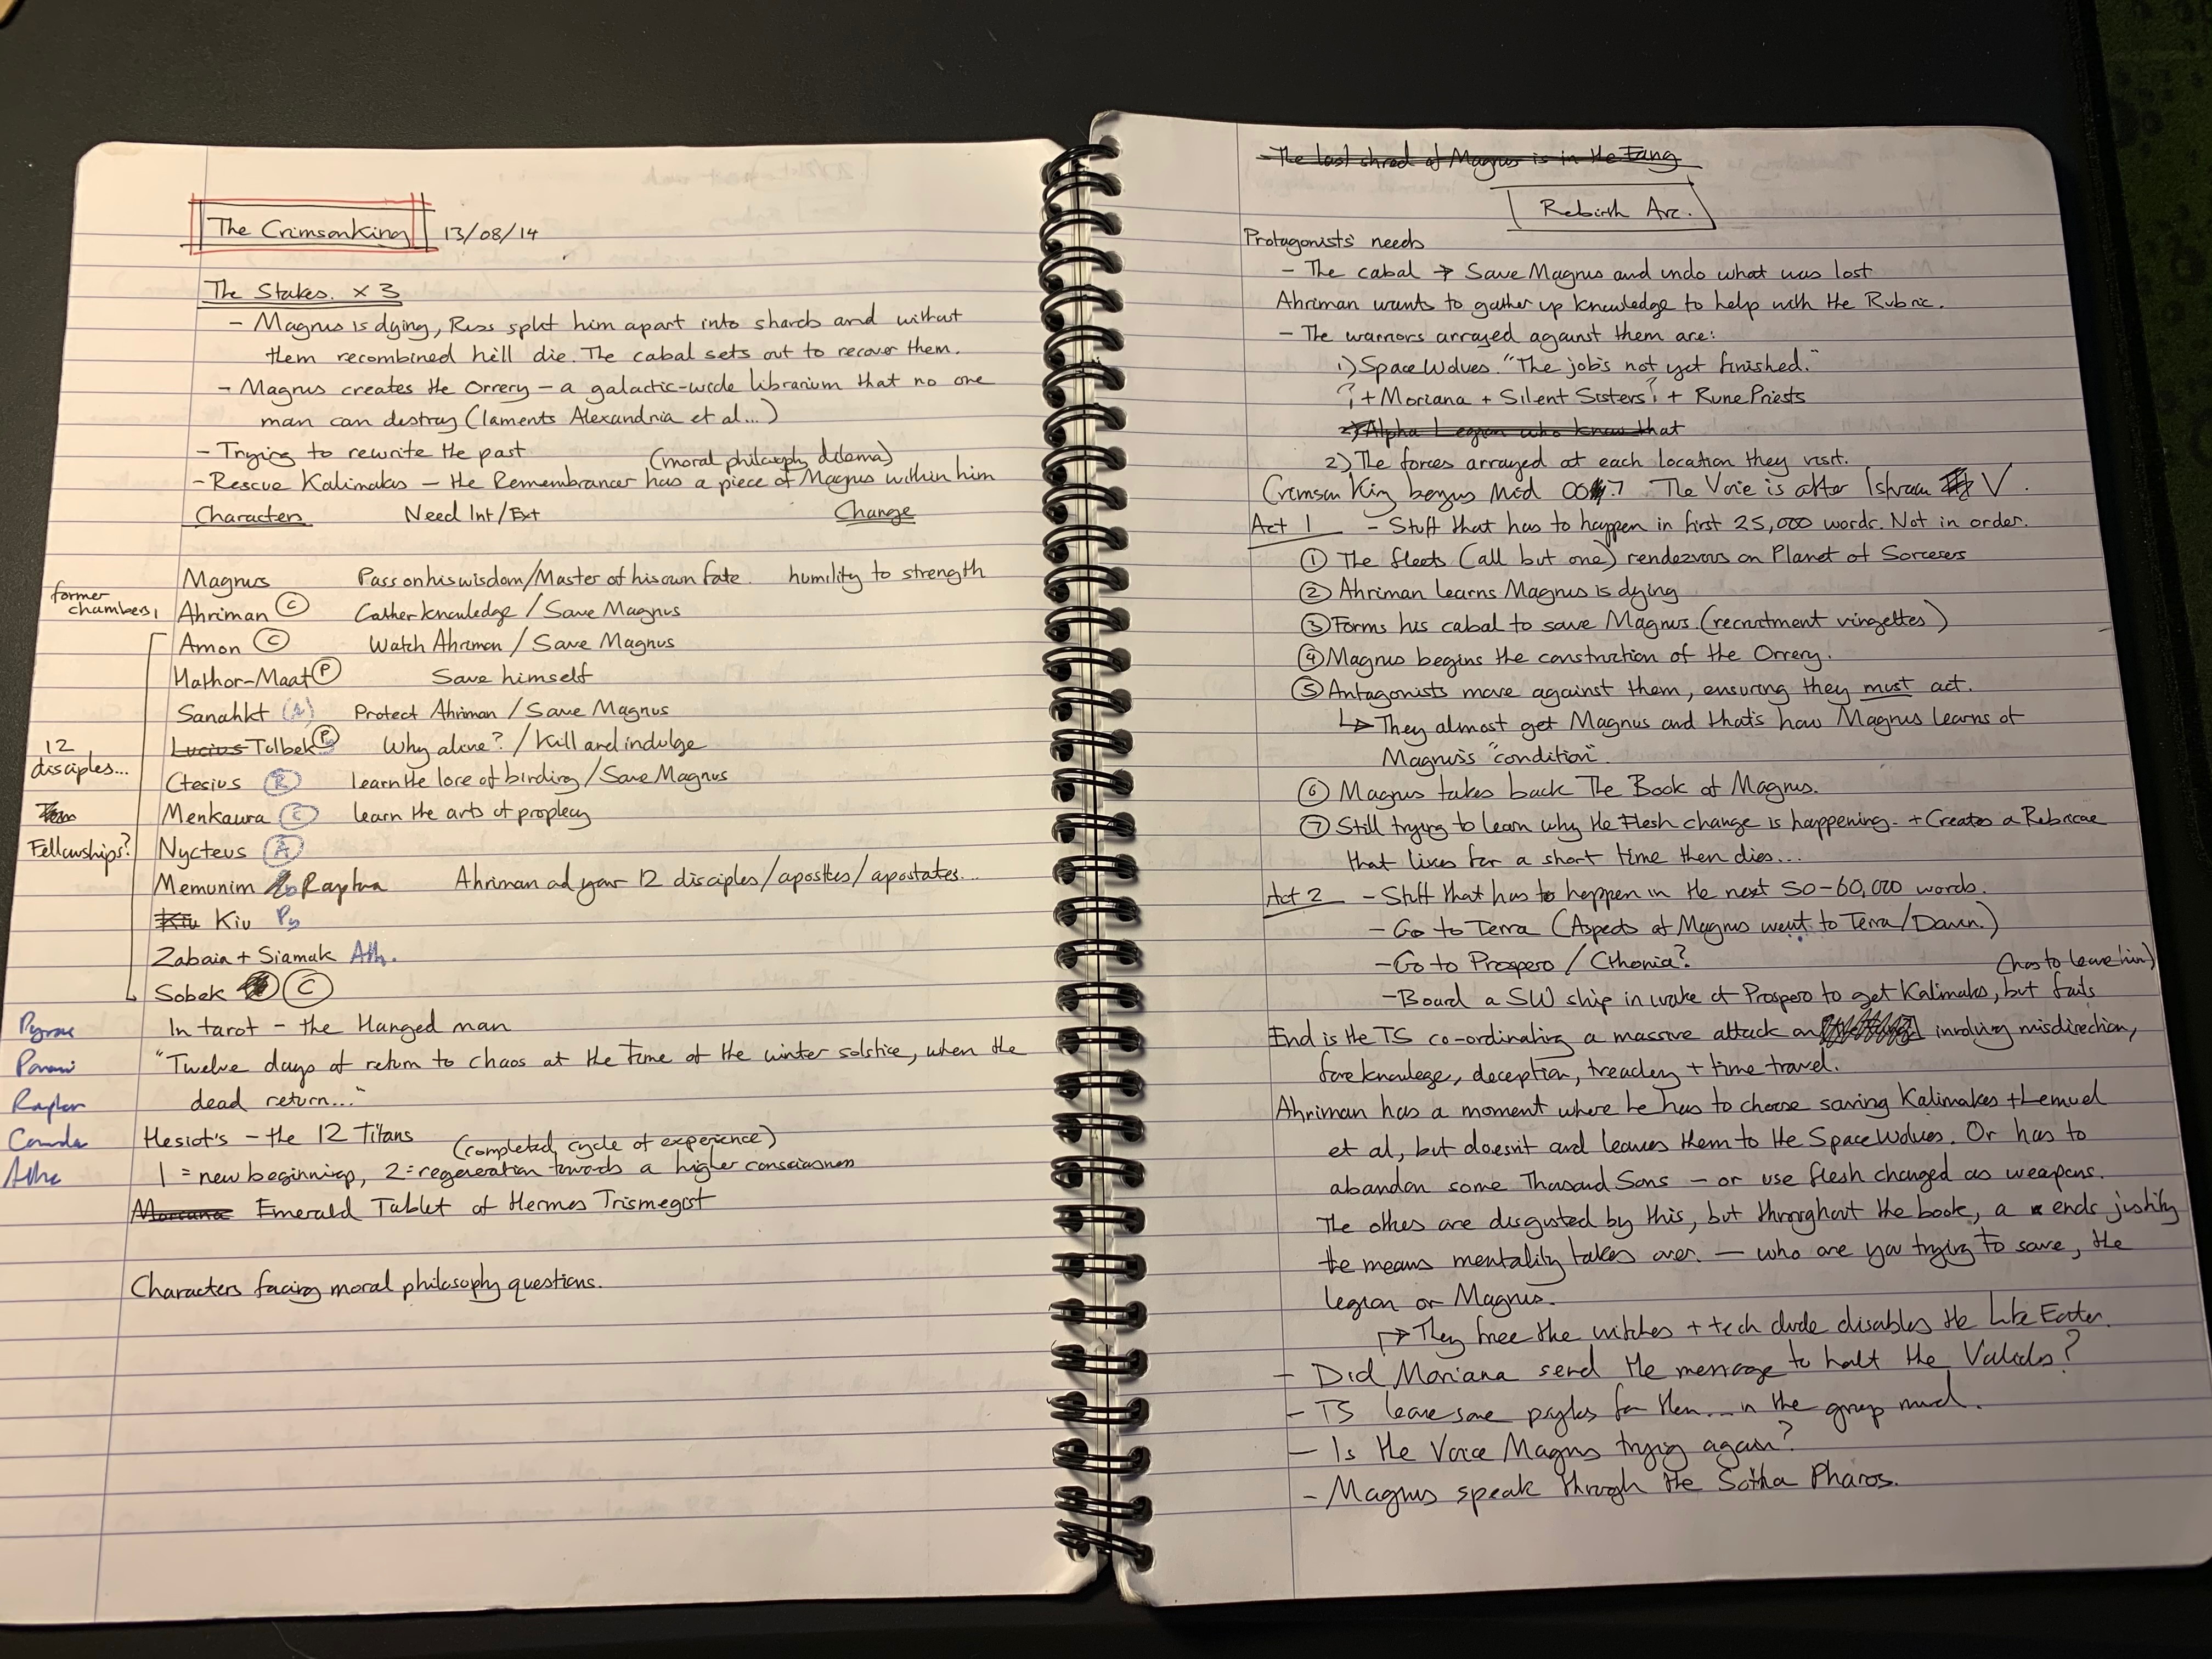 The Crimson King 13/08/14
The Stakes. x 3
- Magnus is dying, Russ split him apart into shards and without
them recombined he'll die. The cabal sets out to recover them.
- Magnus creates the Orrery - a galactic-wide librarium that no one
man can destroy (laments Alexandria et al...)
- Trying to rewrite the past
(moral philosophy dilema)
- Rescue Kalimakus - the Remembrancer has a piece of Magnus within him
Characters Need Int/Ext Change
Magnus Pass on his wisdom/Master of his own fate. humility to strength
former
chambers,
Ahriman C Gather knowledge / Save Magnus
Amon C Watch Ahriman / Save Magnus
Hathor-Maat P Save himself
Sanahkt (A) Protect Ahriman / Save Magnus
12
disciples...
Lucius Tolbek P Why alive? / Kill and indulge
Ctesius R learn the lore of birding / Save Magnus
Menkaura C learn the arts of prophecy
Fellowships?
Nycteus A
Memunim Raptora Ahriman ad your 12 disciples/apostles/apostates...
Kiu Kiu Py
Zabaia + Siamak Ath.
Sobek C
Pyrae
In tarot - the Hanged man
Pavoni
"Twelve days of return to chaos at the time of the winter solstice, when the
Raptor
dead return..."
Hesiot's - the 12 Titans
(completed cycle of experience)
Atha
1 = new beginnings, 2 = regeneration towards a higher consciousness
Moriana Emerald Tablet of Hermes Trismegist
Characters facing moral philosophy questions.
- The last shred of Magnus is in the Fang
Rebirth Arc.
Protagonists' needs
- The cabal → Save Magnus and undo what was lost
Ahriman wants to gather up knowledge to help with the Rubric.
- The warriors arrayed against them are:
1) Space Wolves. "The job's not yet finished."
? + Moriana + Silent Sisters? + Rune Priests
2) Alpha Legion who know that
2) The forces arrayed at each location they visit.
Crimson King begins Mid 007. The Voice is after Istvaan V.
Act 1 - Stuff that has to happen in first 25,000 words. Not in order.
① The fleets (all but one) rendezvous on Planet of Sorcerers
② Ahriman learns Magnus is dying
③ Forms his cabal to save Magnus. (recruitment vingettes)
④ Magnus begins the construction of the Orrery.
⑤ Antagonists move against them, ensuring they must act.
↳ They almost get Magnus and that's how Magnus learns of
Magnus's "condition".
⑥ Magnus takes back The Book of Magnus.
⑦ Still trying to learn why the Flesh change is happening. + Creates a Rubricae
that lives for a short time then dies...
Act 2 - Stuff that has to happen in the next 50-60,000 words.
- Go to Terra (Aspects of Magnus went to Terra/Davin.)
- Go to Prospero / Cthonia?
(has to leave him)
- Board a SW ship in wake of Prospero to get Kalimakus, but fails
End is the TS co-ordinating a massive attack on involving misdirection,
foreknowlege, deception, treachery + time travel.
Ahriman has a moment where he has to choose saving Kalimakes + Lemuel
et al, but doesn't and leaves them to the Space Wolves. Or has to
abandon some Thousand Sons - or use flesh changed as weapons.
The others are disgusted by this, but throughout the book, a ends justify
the means mentality takes over. - who are you trying to save, the
legion or Magnus.
↱ They free the witches + tech dude disables the Life Eater.
- Did Moriana send the message to halt the Valdor?
- TS leave some psykers for them... in the group mind.
- Is the Voice Magnus trying again?
- Magnus speak through the Sotha Pharos.